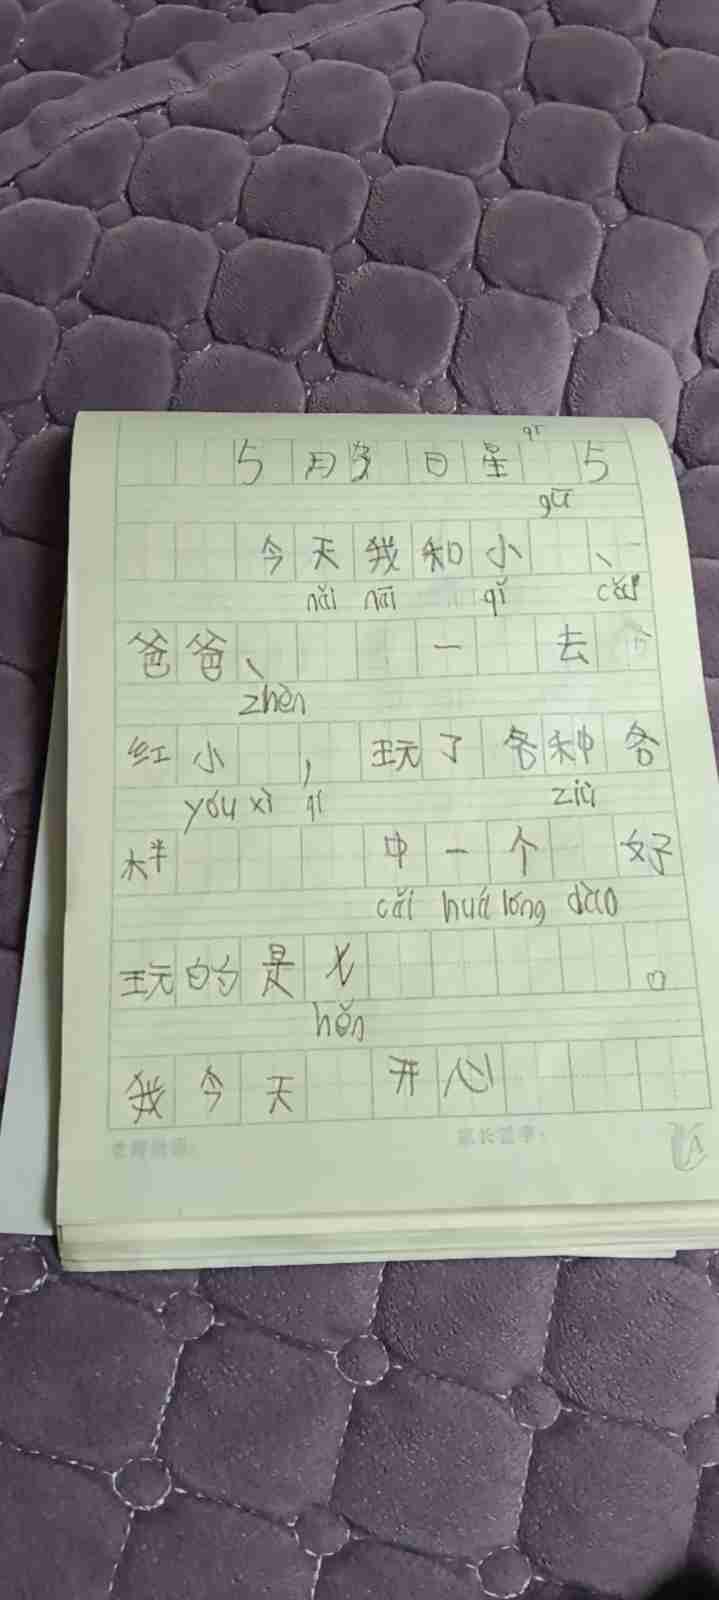 qī
5月3日星 5
gū
今天我和小 、
nǎi nāi qǐ cǎi
爸爸、 一 去
zhèn
红小 ， 玩了各种各
yóu xì qí ziù
样 中一个 好
cǎi huá lóng dào
玩的是 。
hěn
我今天 开心
家长签字：